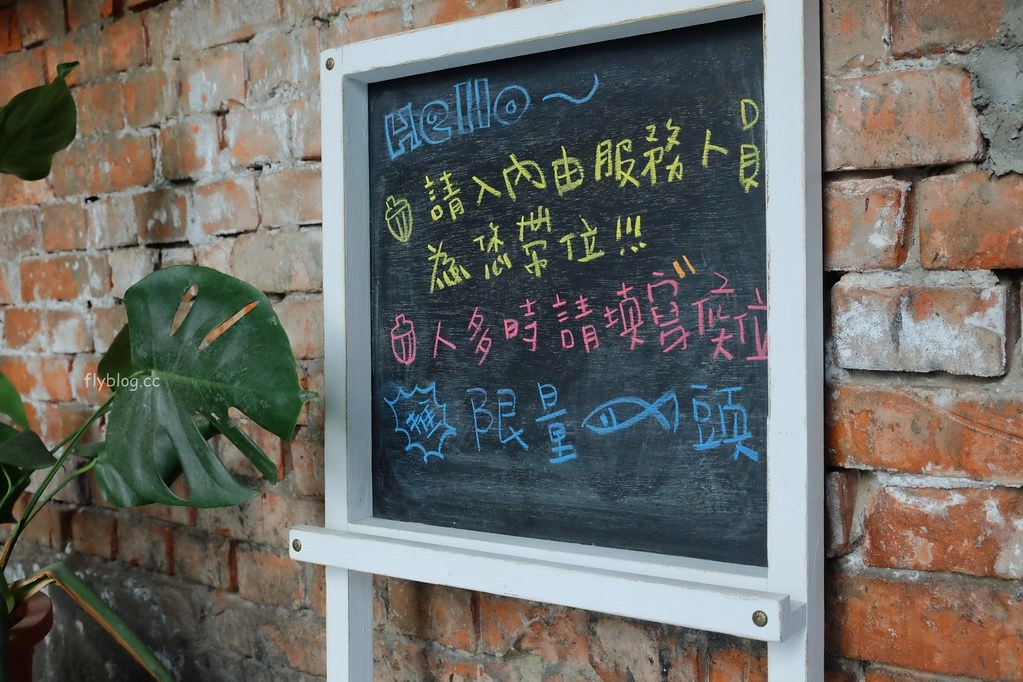 Hello~
請入內由服務人員
為您帶位!!!
人多時請填寫候位
限量 頭
flyblog.cc